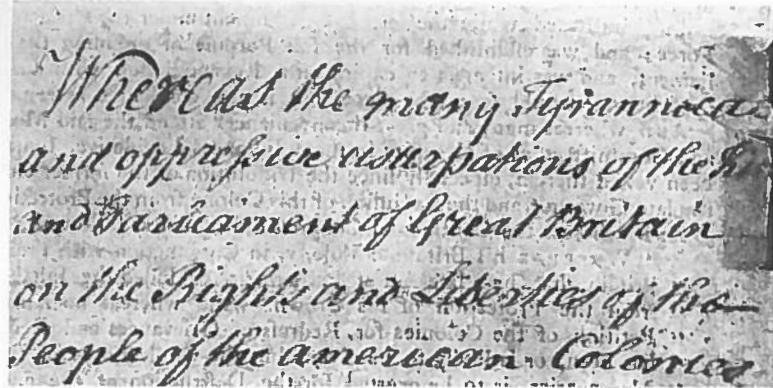 Whereas the many Tyrannical
and oppressive usurpations of the K
and Parliament of Great Britain
on the Rights and Liberties of the
People of the american Colonies